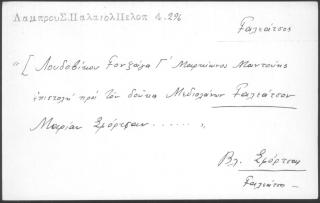 Λαμπρου Σ. Παλαιολ Πελοπ 4.296
Γαλεάτσος
"[Λουδοβίκου Γονζάγα Γ΄ Μαρκίωνος Μαντούης
ἐπιστολή πρὸς τὸν δοῦκα Μεδιολάνων Γαλεάτσον
Μαρίαν Σμόρτσαν ......,
Βλ. Σμόρτσα
Γαλεάτσο